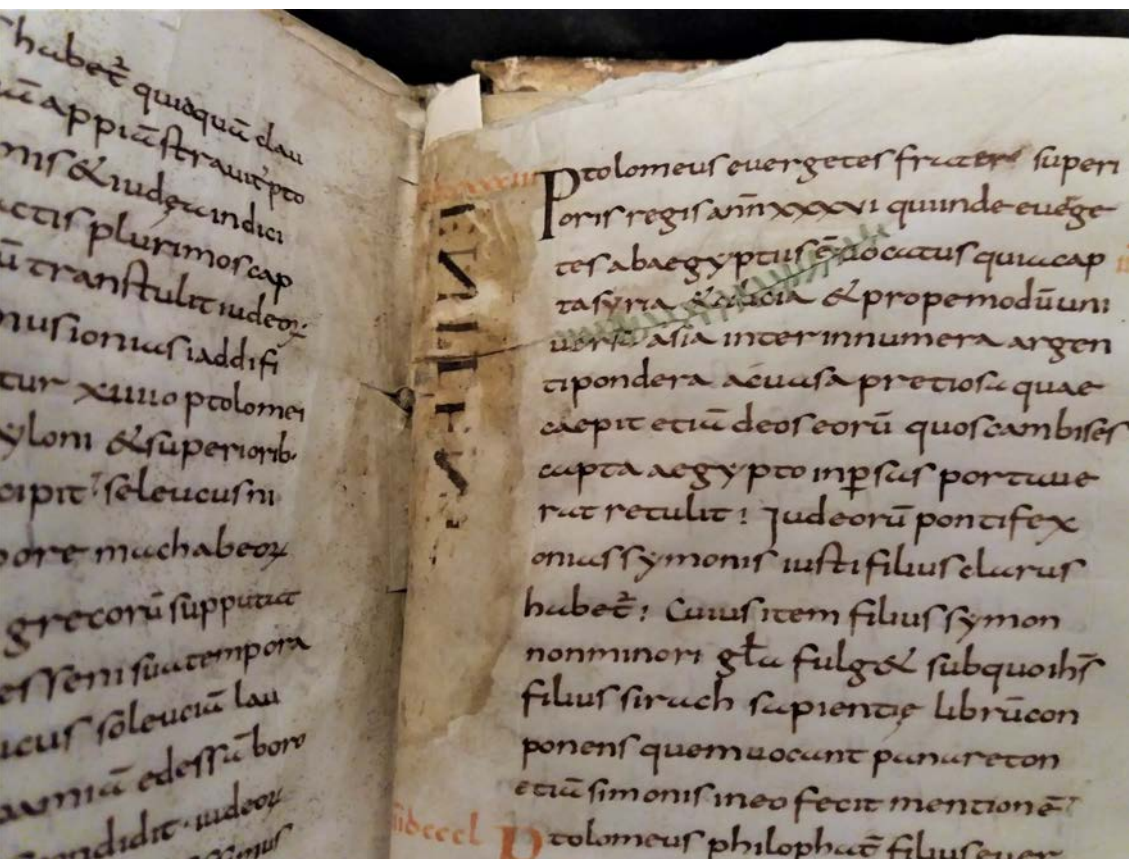 habet̄ quidquā clau
ū appiā stravit pto
mis & iudęā indici
actis plurimos cap
ū transtulit iudeoꝝ
musionius iaddifi
tur xuiiio ptolomei
yloni & superiorib·
cipit seleucus ni
pore machabeoꝝ
grecorū supputat
esseni sua tempora
ucus soleuciā lau
amiā edessā boro
condidit · iudeoꝝ
Ptolomeus euergetes frater superi
oris regis ann̄ xxxvi qui inde euęge
tes ab aegyptus ē uocatus quia cap
ta syria & cilicia & prope modū uni
uersa asia inter innumera argen
ti pondera ac uasa pretiosa quae
caepit etiā deos eorū quos cambises
capta aegypto in ꝑsas portaue
rat retulit : Iudeorū pontifex
onias symonis iusti filius clarus
habet̄ : Cuius item filius symon
non minori gl̄a fulg& sub quo ih̄s
filius sirach sapientię librū con
ponens quem uocant panareton
etiā simonis in eo fecit mentionē
īīīdcccl Ptolomeus philophat̄ filius euer